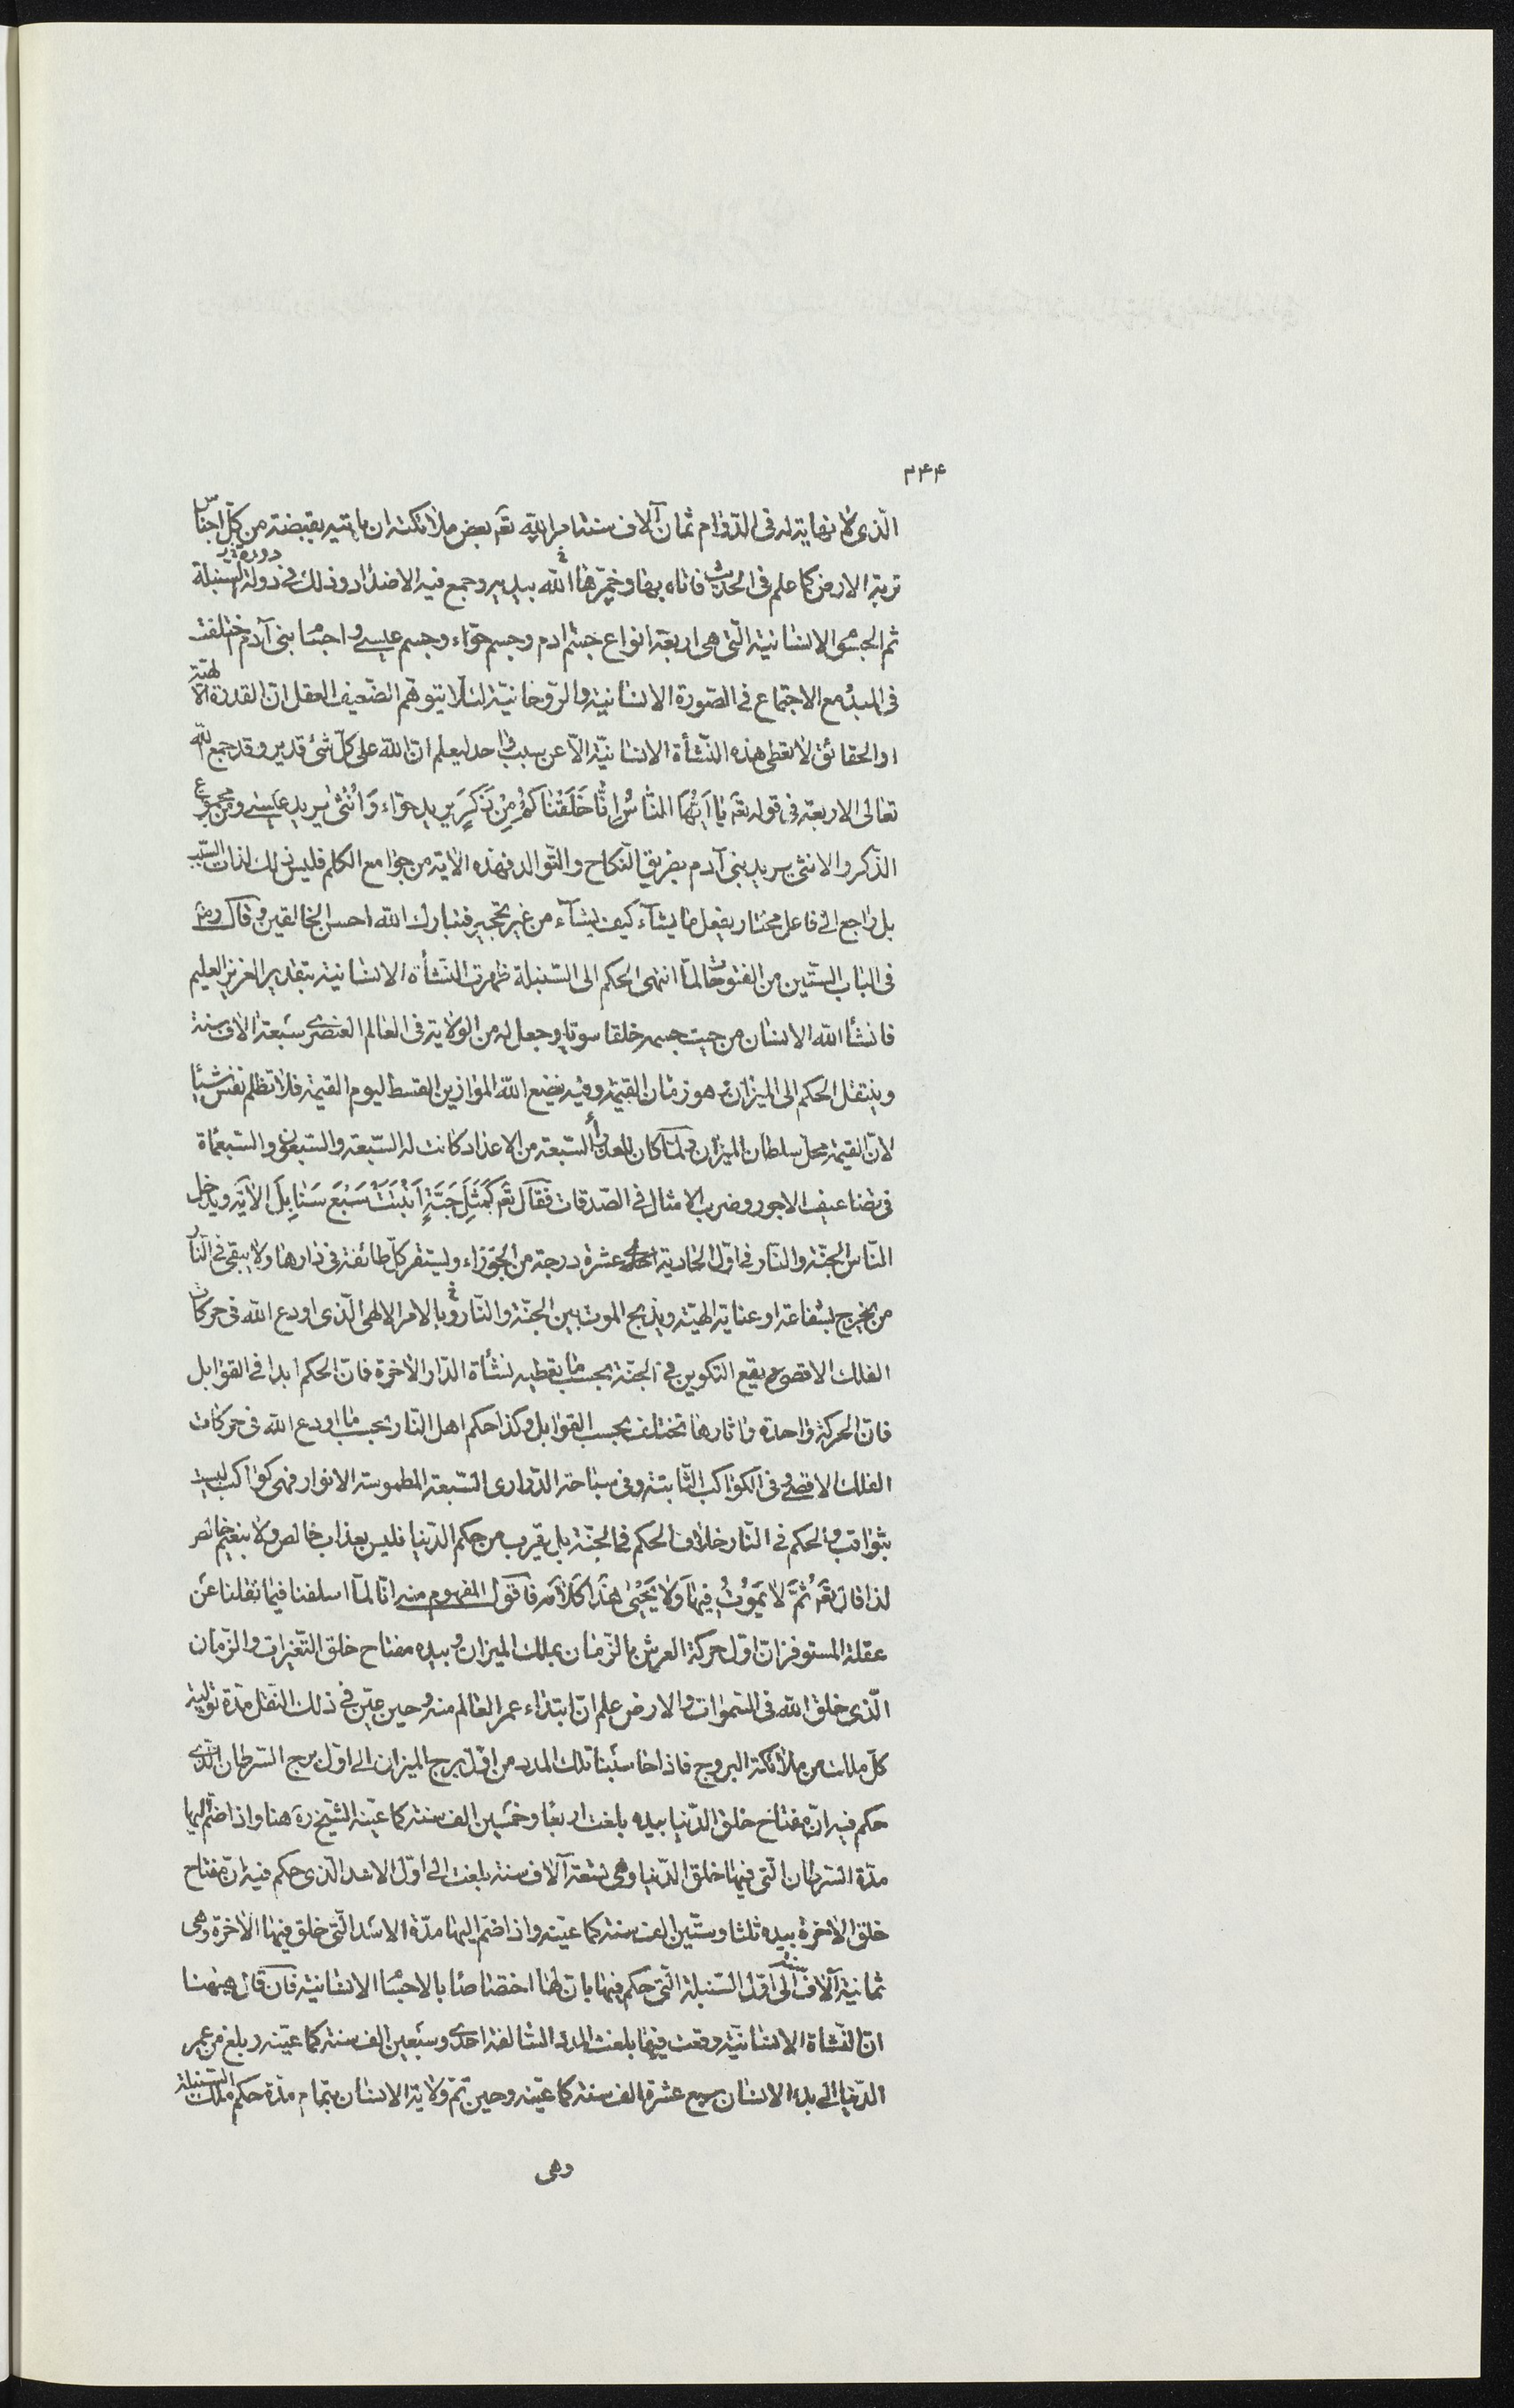 ٢٤٤
الّذى لا نهاية له فى الدّوام ثمان آلاف سنة امر اللّه تعَ بعض ملائكته ان ياتيه بقبضة من كلّ اجناس
تربة الارض كما علم فى الحديث فاتاه بها وخمّرها اللّه بيديه وجمع فيه الاضداد وذلك فى دولة السّنبلة
ثم الجسوم الانسانية الّتى هى اربعة انواع جسم ادم وجسم حوّاء وجسم عيسى واجسام بنى آدم ختلفت
فى البدُ مع الاجتماع فى الصّورة الانسانية والرّوحانيّة لئلّا يتوهّم الضّعيف العقل انّ القدرة الالٰهيّة
اوالحقائق لا تعطى هذه النّشأة الانسانيّة الّا عن سبب واحد ليعلم انّ اللّه على كلّ شئ قدير وقد جمع اللّه
تعالى الاربعة فى قوله تعَ يا اَيُّهَا النّاسُ اِنّا خَلَقْناكُمْ مِنْ ذَكَرٍ يريد حوّاء وَ اُنْثىٰ يريد عيسى ومن مجموع
الذّكر والانثى يريد بنى آدم بطريق النّكاح والتّوالد فهذه الاية من جوامع الكلم فليس ذلك لذات السّبب
بل راجع الى فاعل مختار يفعل ما يشآء كيف يشآء من غير تحجير فتبارك اللّه احسن الخالقين وقال رضَ
فى الباب السّتين من الفتوحات لمّا انتهى الحكم الى السّنبلة ظهرت النّشأة الانسانية بتقدير العزيز العليم
فانشأ اللّه الانسان من حيث جسمه خلقا سويّا وجعل له من الولاية فى العالم العنصرى سبعة الاف سنة
وينتقل الحكم الى الميزان وهو زمان القيمة وفيه يضع اللّه الموازين القسط ليوم القيمة فلا تظلم نفس شيئا
لانّ القيمة محلّ سلطان الميزان ولمّا كان للعذراء السّبعة من الاعداد كانت له السّبعة والسّبعون والسّبعمأة
فى تضاعيف الاجور وضرب الامثال فى الصّدقات فقال تعَ كَمَثَلِ حَبَّةٍ اَنْبَتَتْ سَبْعَ سَنابِلَ الآية ويدخل
النّاس الجنّة والنّار فى اوّل الحادية عشرة درجة من الجوزاء وليستقر كلّ طائفة فى دارها ولا يبقى فى النّار
من يخرج بشفاعة او عناية الهيّة ويذبح الموت بين الجنّة والنّار وبالامر الالهى الّذى اودع اللّه فى حركات
الفلك الاقصى يقع التكوين فى الجنّة بحسب ما يعطيه نشأة الدّار الاخرة فانّ الحكم ابدا فى القوابل
فانّ الحركة واحدة واثارها تختلف بحسب القوابل وكذا حكم اهل النّار بحسب ما اودع اللّه فى حركات
الفلك الاقصى وفى الكواكب الثّابتة وفى سباحة الدّرارى السّبعة المطموسة الانوار فهى كواكب ليست
بثواقب والحكم فى النّار خلاف الحكم فى الجنّة بل يقرب من حكم الدّنيا فليس بعذاب خالص ولا بنعيم خالص
لذا قال تعَ ثُمَّ لا يَمُوتُ فيها وَلا يَحْيىٰ هذا كلامه فاقول المفهوم منه انّا لمّا اسلفنا فيما نقلنا عن
عقلة المستوفز انّ اوّل حركة العرش بالزّمان بملك الميزان وبيده مفتاح خلق التّغيرات والزّمان
الّذى خلق اللّه فى السّموات والارض علم انّ ابتداء عمر العالم منه وحين عيّن فى ذلك النّقل مدّة تولية
كلّ ملك من ملائكة البروج فاذا حاسبنا تلك المدد من اوّل برج الميزان الى اوّل برج السّرطان الّذى
حكم فيه انّ مفتاح خلق الدّنيا بيده بلغت اربعا وخمسين الف سنة كما عيّنه الشّيخ ره هنا واذا ضمّ اليها
مدّة السّرطان الّتى فيها خلق الدّنيا وهى تسعة آلاف سنة بلغت الى اوّل الاسد الّذى حكم فيه انّ مفتاح
خلق الاخرة بيده ثلثا وستّين الف سنة كما عيّنه واذا ضمّ اليها مدّة الاسد الّتى خلق فيها الاخرة وهى
ثمانية آلاف سنة الى اوّل السّنبلة الّتى حكم فيها بانّ لها اختصاصا بالاجسام الانسانية فان قال هيهنا
انّ النّشأة الانسانيّة وقعت فيها بلغت المدّة السّالفة احدى وسبعين الف سنة كما عيّنه وبلغ من عمر
الدّنيا الى بدء الانسان سبع عشرة الف سنة كما عيّنه وحين تمّ ولاية الانسان بتمام مدّة حكم ملك السّنبلة
وهى